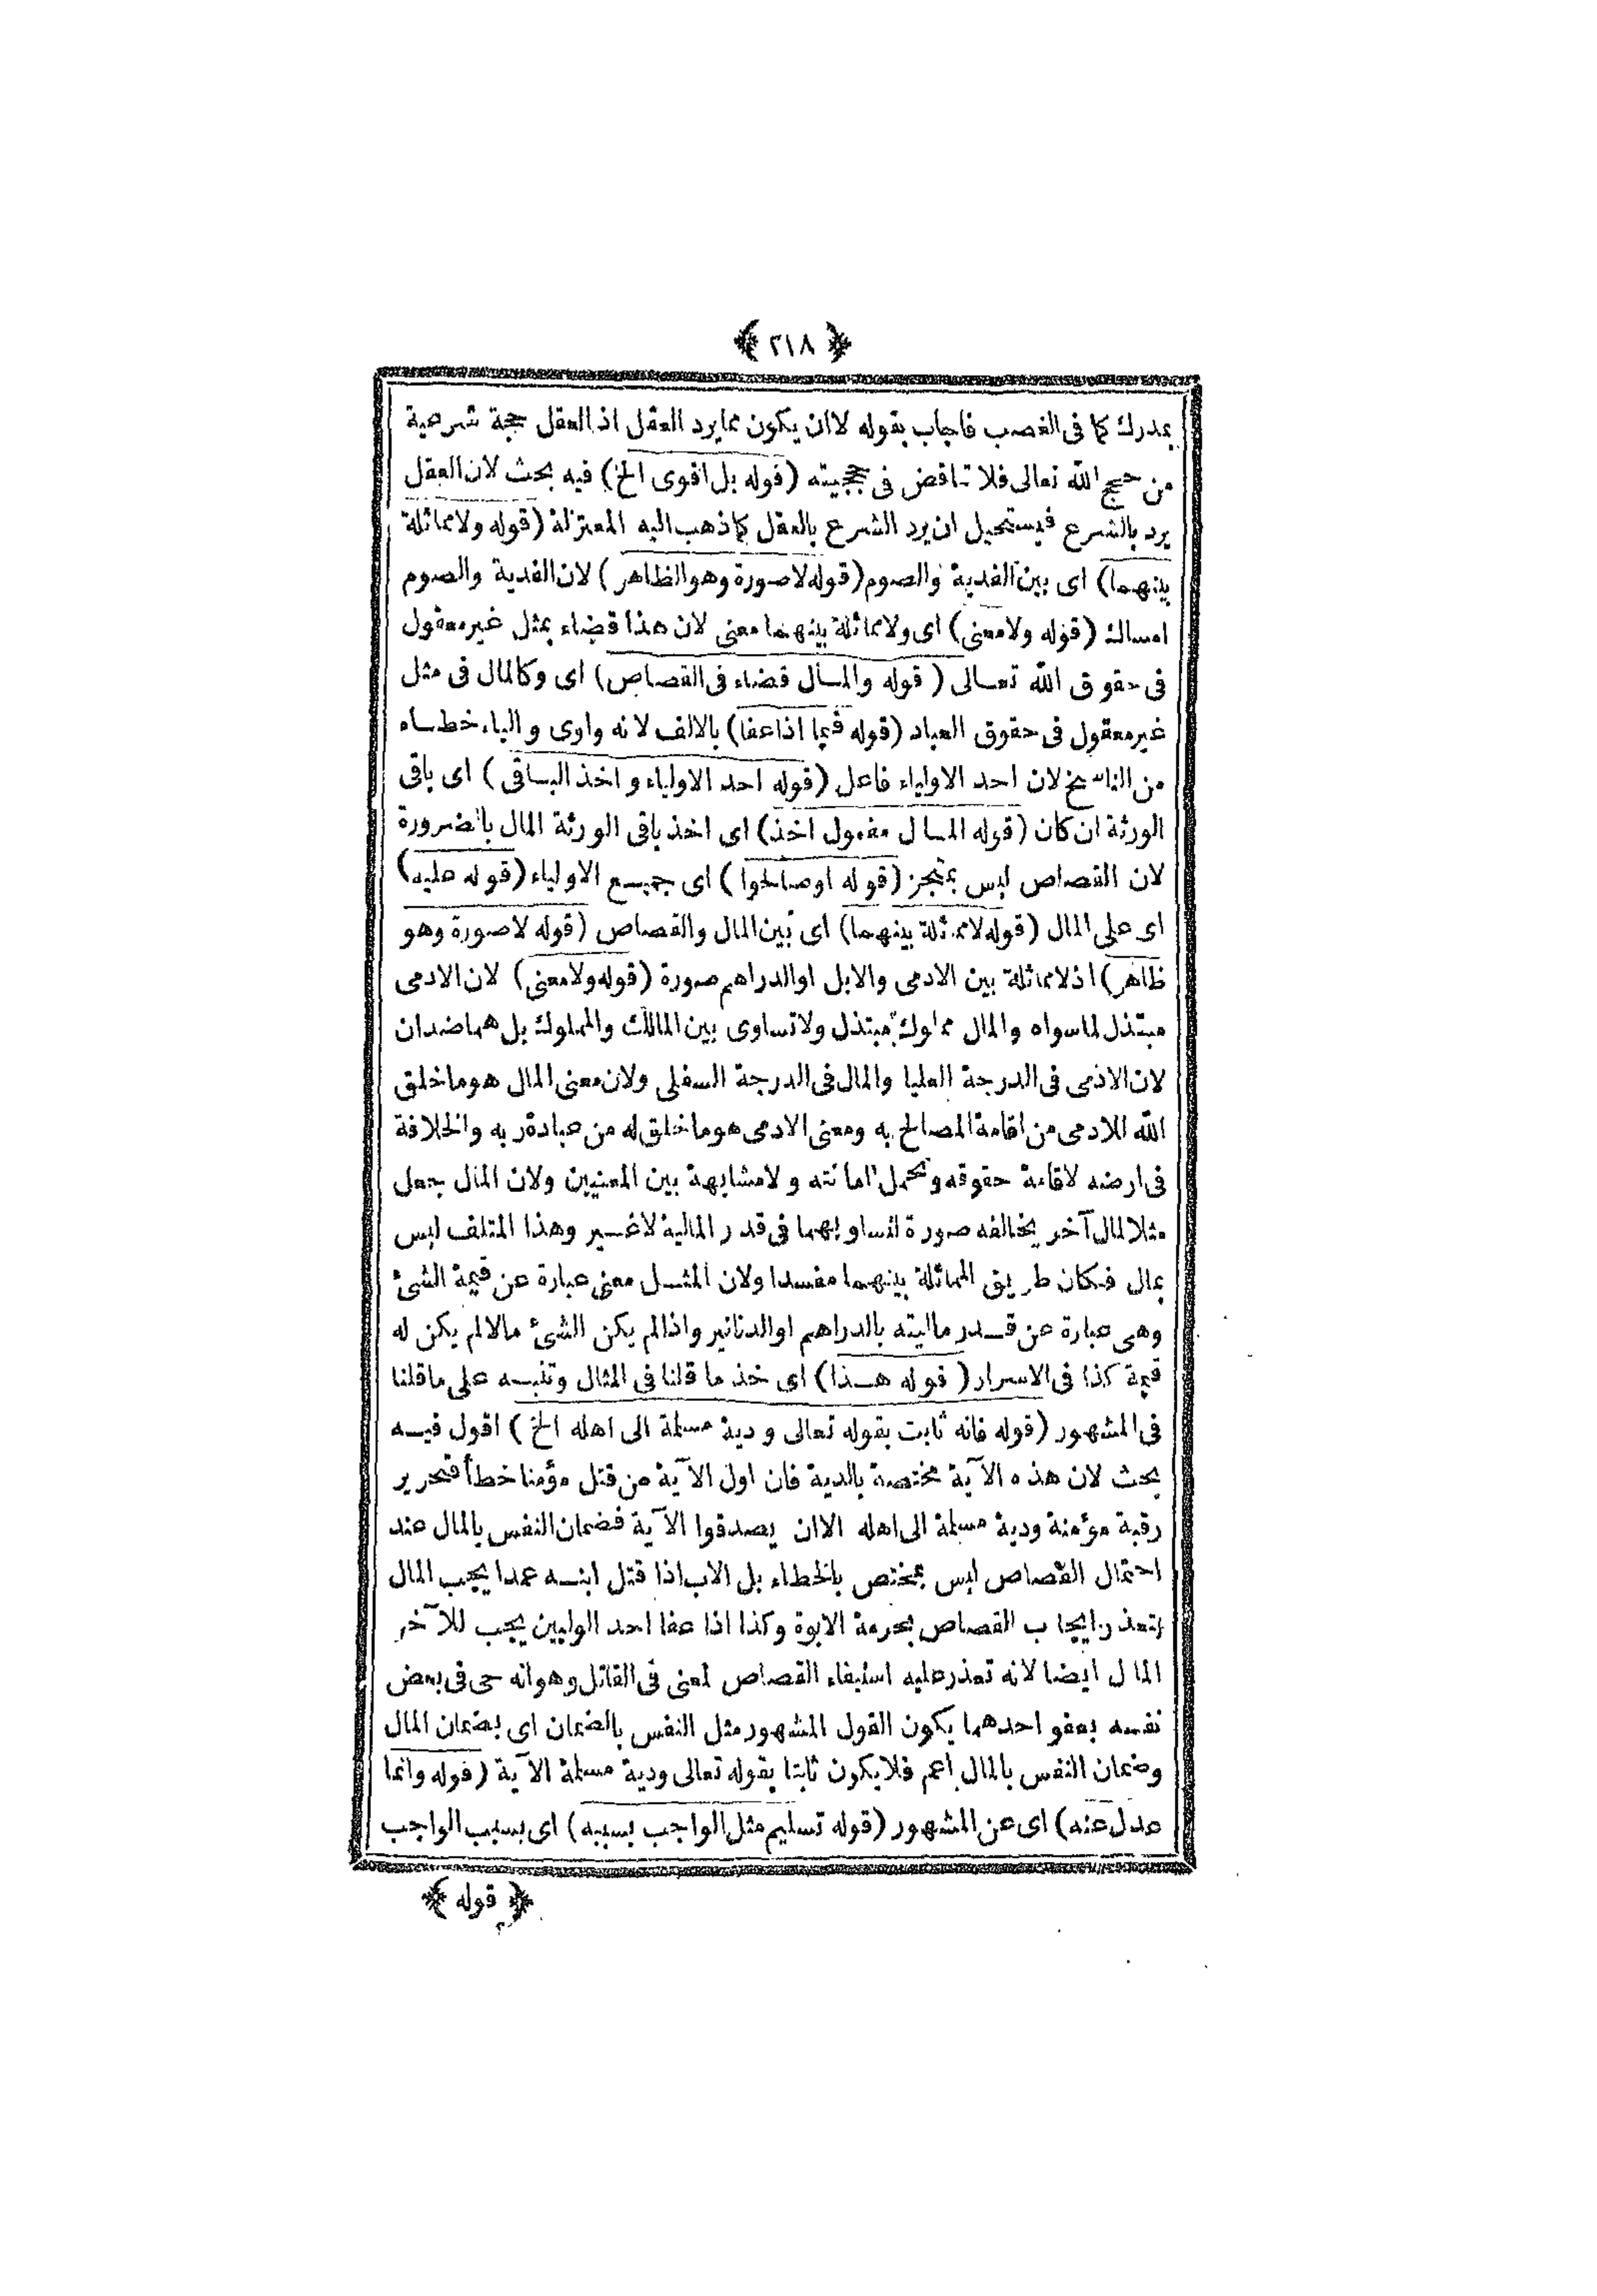 ﴿ ٢١٨ ﴾
بمدرك كما فى الغصب فاجاب بقوله لا ان يكون مما يرد العقل اذ العقل حجة شرعية
من حجج الله تعالى فلا تناقض فى حججيته (قوله بل اقوى الخ) فيه بحث لان العقل
يرد بالشرع فيستحيل ان يرد الشرع بالعقل كما ذهب اليه المعتزلة (قوله ولا مماثلة
بينهما) اى بين الفدية والصوم (قوله لا صورة وهو الظاهر) لان الفدية والصوم
امساك (قوله ولا معنى) اى ولا مماثلة بينهما معنى لان هذا قضاء بمثل غير معقول
فى حقوق الله تعالى (قوله والمال قضاء فى القصاص) اى وكالمال فى مثل
غير معقول فى حقوق العباد (قوله فيما اذا عفا) بالالف لانه واوى والياء خطاء
من الناسخ لان احد الاولياء فاعل (قوله احد الاولياء واخذ الباقى) اى باقى
الورثة ان كان (قوله المال مفعول اخذ) اى اخذ باقى الورثة المال بالضرورة
لان القصاص ليس بمتجز (قوله او صالحوا) اى جميع الاولياء (قوله عليه)
اى على المال (قوله لا مماثلة بينهما) اى بين المال والقصاص (قوله لا صورة وهو
ظاهر) اذ لا مماثلة بين الادمى والابل او الدراهم صورة (قوله ولا معنى) لان الادمى
مبتذل لما سواه والمال مملوك مبتذل ولا تساوى بين المالك والمملوك بل هما ضدان
لان الادمى فى الدرجة العليا والمال فى الدرجة السفلى ولان معنى المال هو ما خلق
الله للادمى من اقامة المصالح به ومعنى الادمى هو ما خلق له من عبادة ربه والخلافة
فى ارضه لاقامة حقوقه وتحمل امانته ولا مشابهة بين المعنيين ولان المال يجعل
مثلا لمال آخر يخالفه صورة لتساويهما فى قدر المالية لا غير وهذا المتلف ليس
بمال فكان طريق المماثلة بينهما مفسدا ولان المثل معنى عبارة عن قيمة الشئ
وهى عبارة عن قدر ماليته بالدراهم او الدنانير واذا لم يكن الشئ مالا لم يكن له
قيمة كذا فى الاسرار (قوله هذا) اى خذ ما قلنا فى المثال وتنبه على ما قلنا
فى المشهور (قوله فانه ثابت بقوله تعالى ودية مسلمة الى اهله الخ) اقول فيه
بحث لان هذه الآية مختصة بالدية فان اول الآية من قتل مؤمنا خطأ فتحرير
رقبة مؤمنة ودية مسلمة الى اهله الا ان يصدقوا الآية فضمان النفس بالمال عند
احتمال القصاص ليس بمختص بالخطاء بل الاب اذا قتل ابنه عمدا يجب المال
لتعذر ايجاب القصاص بحرمة الابوة وكذا اذا عفا احد الوليين يجب للآخر
المال ايضا لانه تعذر عليه استيفاء القصاص لمعنى فى القاتل وهو انه حى فى بعض
نفسه بعفو احدهما يكون القول المشهور مثل النفس بالضمان اى بضمان المال
وضمان النفس بالمال اعم فلا يكون ثابتا بقوله تعالى ودية مسلمة الآية (قوله وانما
عدل عنه) اى عن المشهور (قوله تسليم مثل الواجب بسببه) اى بسبب الواجب
﴿ قوله ﴾